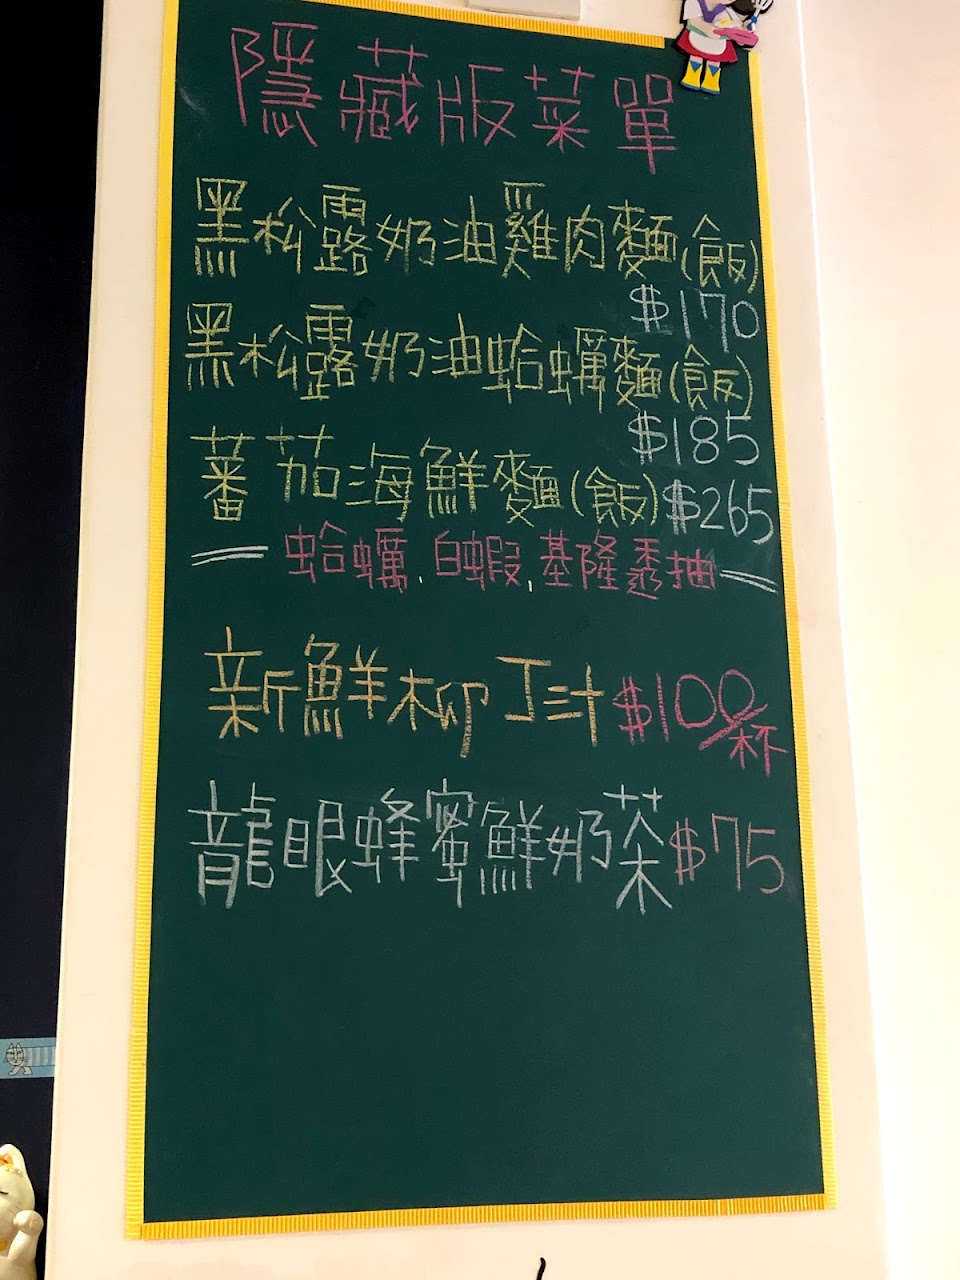 隱藏版菜單
黑松露奶油雞肉麵(飯)
$170
黑松露奶油蛤蠣麵(飯)
$185
蕃茄海鮮麵(飯)$265
蛤蠣,白蝦,基隆透抽
新鮮柳丁汁$100/杯
龍眼蜂蜜鮮奶茶$75